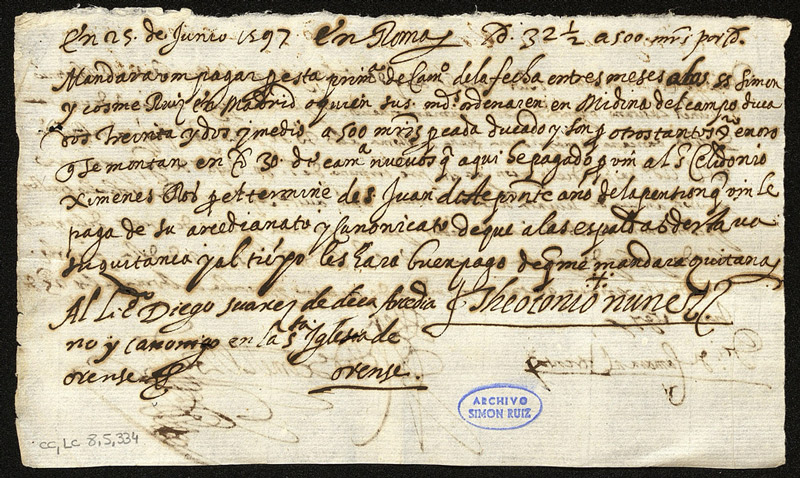 En 25 de Junio 1597 En Roma D. 32 ½ a 500 mrs por d.
Mandara vm pagar p esta prim.ª de Cam.º de la fecha en tres meses a los ss simon
y cosme Ruiz en Madrid o quien sus mds ordenaren en Midina del campo duca
dos treinta y dos y medio a 500 mrs p cada ducado y son p otros tantos en oro
q se montan en 30 de cam.ª nuevos q aqui he pagado p vm al s.r Celidonio
Ximenes p el termine de s Juan deste pnte año de la pension q vm le
paga de su arcedianato y Canonicato de que a las espaldas
su quitança y al tiépo les hara buen pago de q me mandara quitança
Al L.do Diego Suarez de deca
Theotonio nunez
no y canonigo en la s.ta Iglesia de
orense
orense.
ARCHIVO
SIMON RUIZ
CC, LC 8,5,334